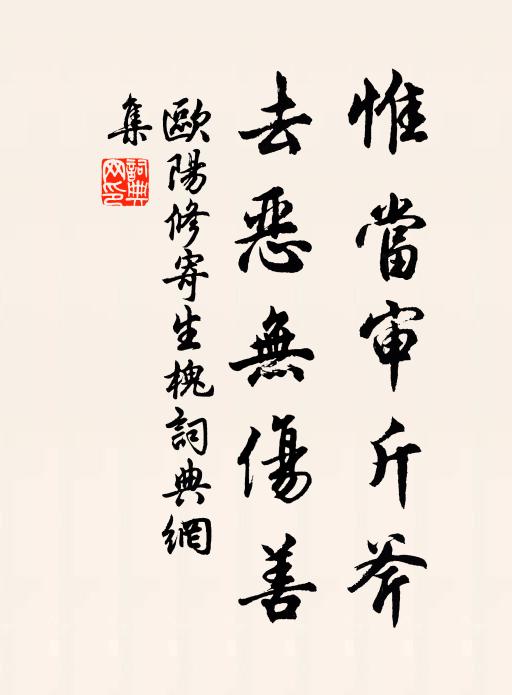 惟當审斤斧
去惡無傷善
歐陽修寄生槐詞典網
集
詞典
网印